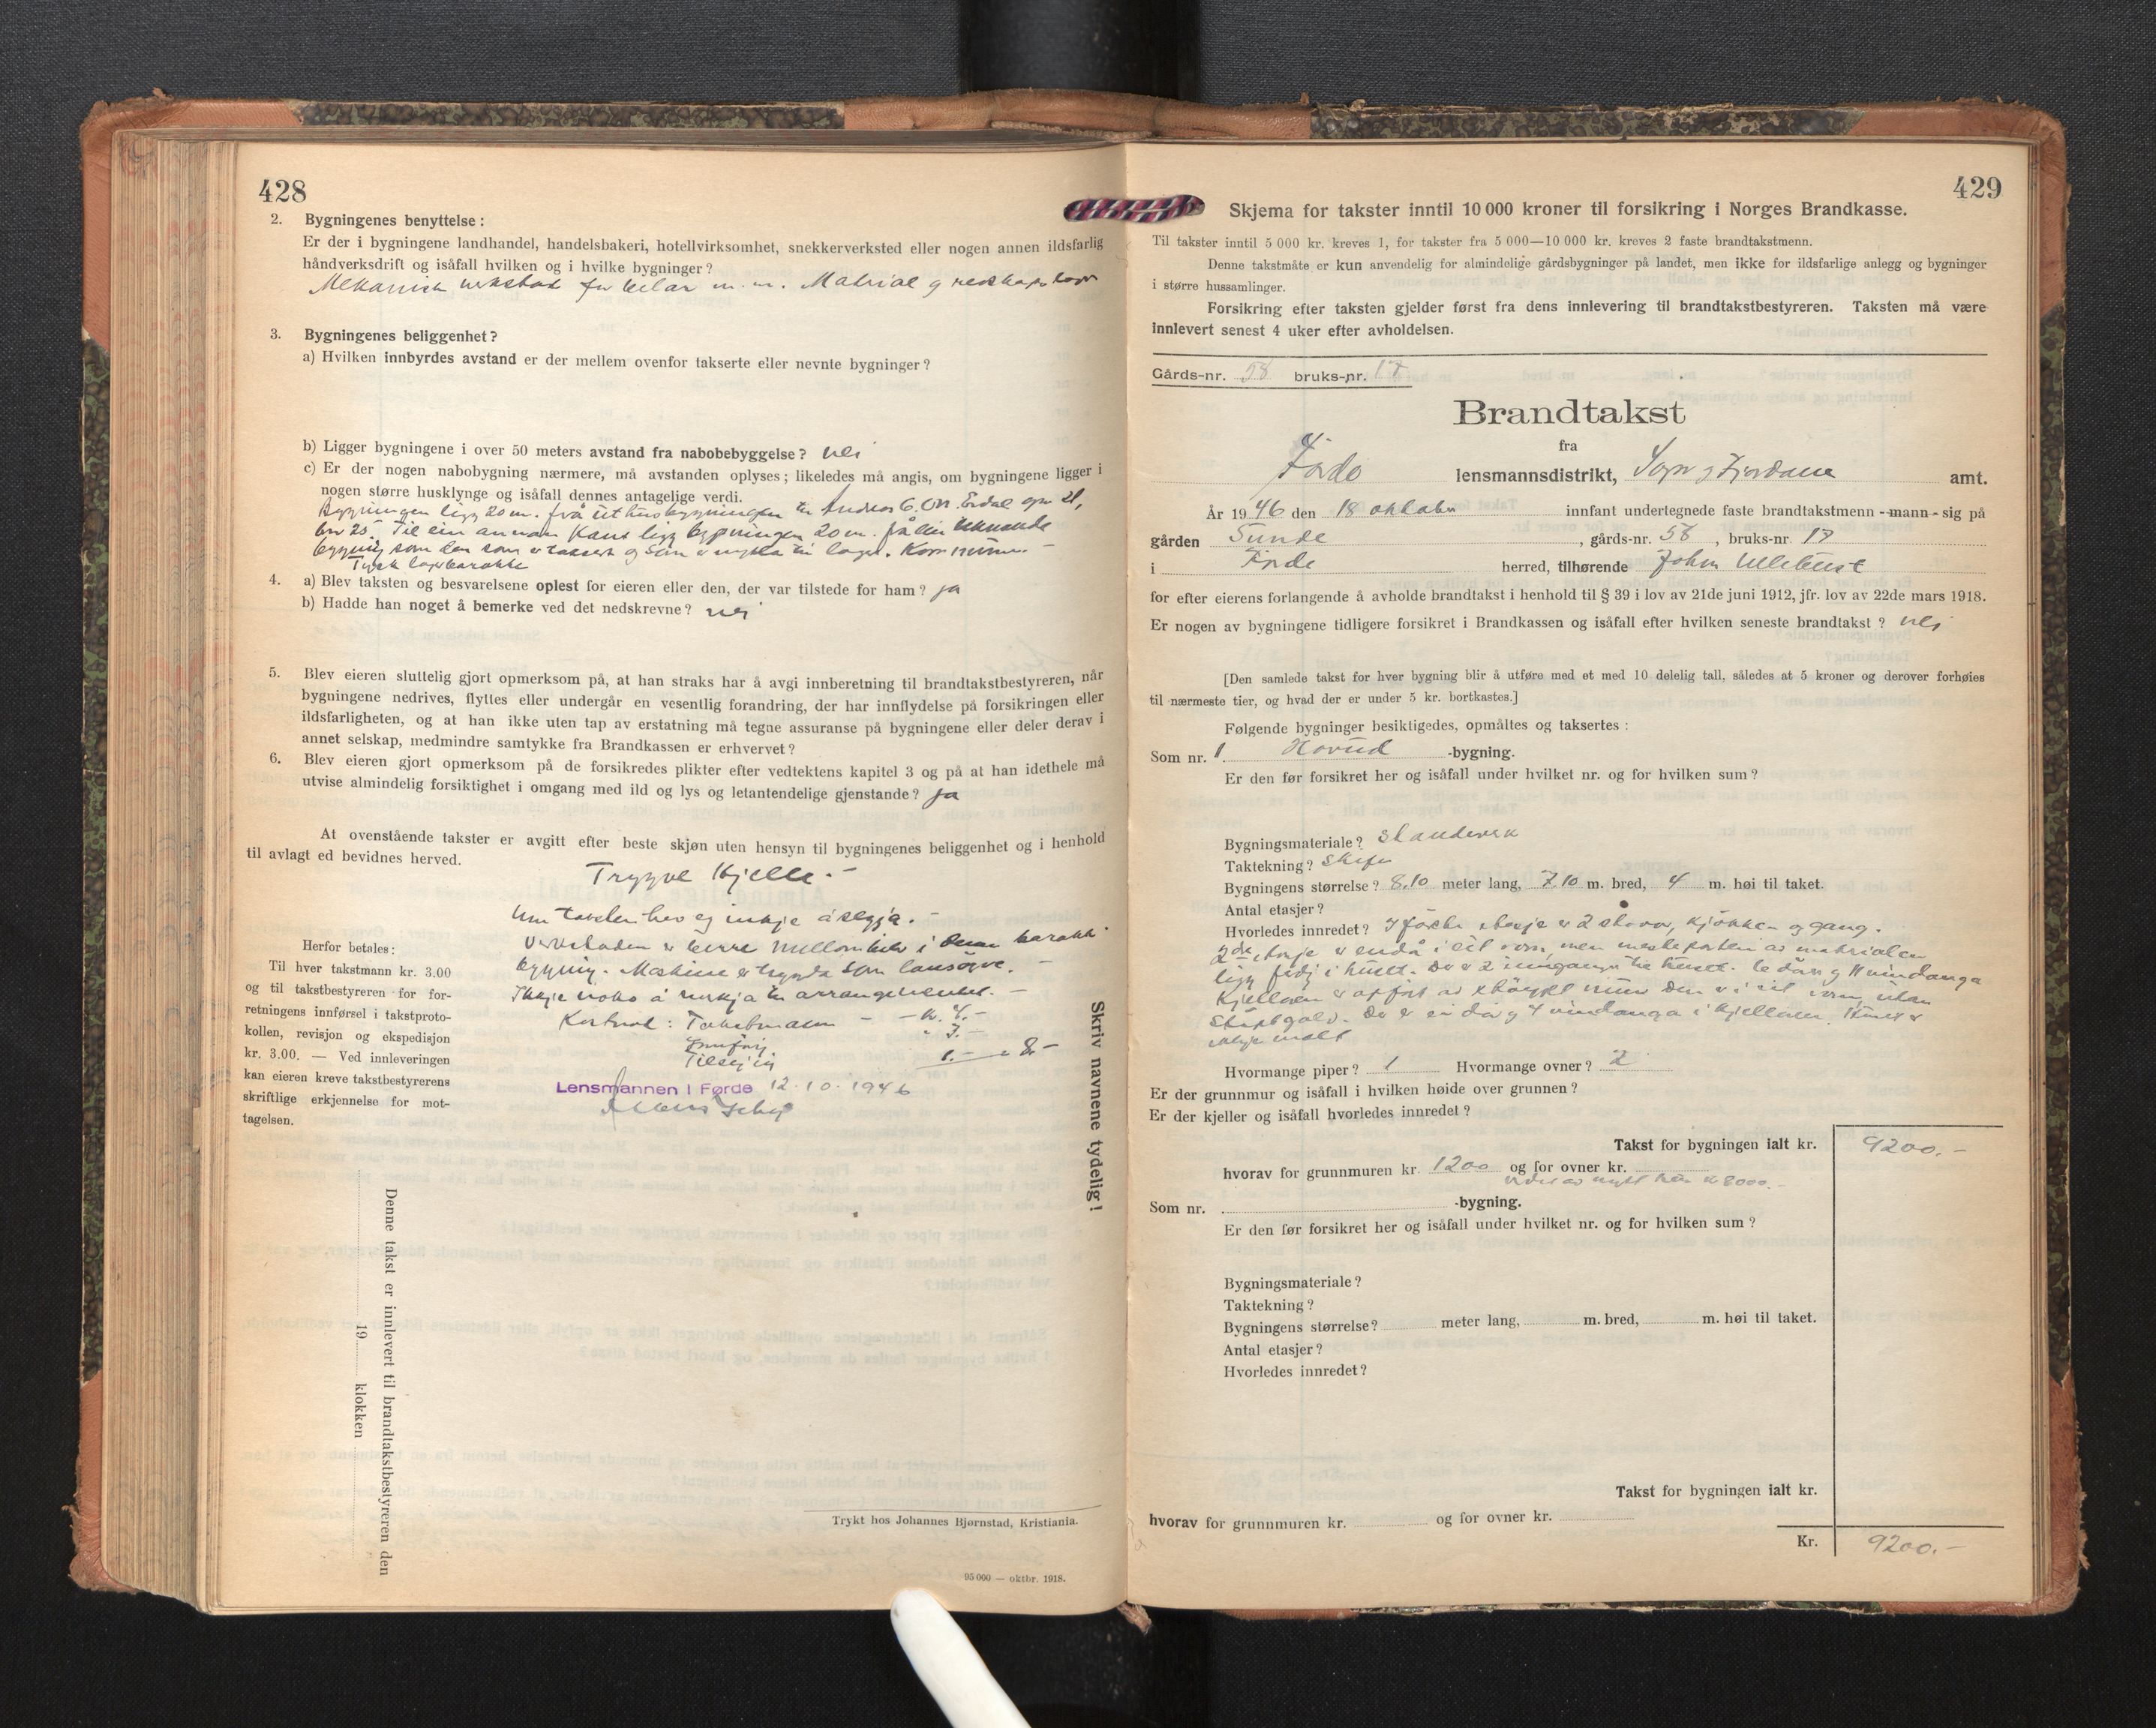 428
2. Bygningenes benyttelse :
Er der i bygningene landhandel, handelsbakeri, hotellvirksomhet, snekkerverksted eller nogen annen ildsfarlig
håndverksdrift og isåfall hvilken og i hvilke bygninger?
Mekanisk verkstad for bilar m. m. Matrial g
3. Bygningenes beliggenhet?
a) Hvilken innbyrdes avstand er der mellem ovenfor takserte eller nevnte bygninger?
b) Ligger bygningene i over 50 meters avstand fra nabobebyggelse? nei
c) Er der nogen nabobygning nærmere, må avstanden oplyses; likeledes må angis, om bygningene ligger i
nogen større husklynge og isåfall dennes antagelige verdi.
Bygningen ligg 20 m. frå uthusbygningen til Andreas G. Erdal gnr 21,
bnr 25. Til ein annan kant ligg bygningen 20 m. frå ein liknande
bygnig som den som er taksert og som er nytta til lager.
Tysk lagerbarakke
4. a) Blev taksten og besvarelsene oplest for eieren eller den, der var tilstede for ham? ja
b) Hadde han noget å bemerke ved det nedskrevne? nei
5. Blev eieren sluttelig gjort opmerksom på, at han straks har å avgi innberetning til brandtakstbestyreren, når
bygningene nedrives, flyttes eller undergår en vesentlig forandring, der har innflydelse på forsikringen eller
ildsfarligheten, og at han ikke uten tap av erstatning må tegne assuranse på bygningene eller deler derav i
annet selskap, medmindre samtykke fra Brandkassen er erhvervet?
6. Blev eieren gjort opmerksom på de forsikredes plikter efter vedtektens kapitel 3 og på at han idethele må
utvise almindelig forsiktighet i omgang med ild og lys og letantendelige gjenstande? ja
At ovenstående takster er avgitt efter beste skjøn uten hensyn til bygningenes beliggenhet og i henhold
til avlagt ed bevidnes herved.
Trygve Kjelle. -
Um taksten hev eg inkje å segja. -
Verkstaden er berre i denne barakk-
bygnig. Maskine er trygda som lausøyre. -
Ikkje noko å merkja til arrangementet. -
Kostnad : Takstmann - - kr. 4.-
Innføring " 3.-
Tilsegjing 1.- " 8.-
Lensmannen i Førde 12.10.1946
Herfor betales:
Til hver takstmann kr. 3.00
og til takstbestyreren for for-
retningens innførsel i takstproto-
kollen, revisjon og ekspedisjon
kr. 3.00. — Ved innleveringen
kan eieren kreve takstbestyrerens
skriftlige erkjennelse for mot-
tagelsen.
Skriv navnene tydelig!
Denne takst er innlevert til brandtakstbestyreren den
19 klokken
Trykt hos Johannes Bjørnstad, Kristiania.
95 000 — oktbr. 1918.
429
Skjema for takster inntil 10 000 kroner til forsikring i Norges Brandkasse.
Til takster inntil 5 000 kr. kreves 1, for takster fra 5 000—10 000 kr. kreves 2 faste brandtakstmenn.
Denne takstmåte er kun anvendelig for almindelige gårdsbygninger på landet, men ikke for ildsfarlige anlegg og bygninger
i større hussamlinger.
Forsikring efter taksten gjelder først fra dens innlevering til brandtakstbestyreren. Taksten må være
innlevert senest 4 uker efter avholdelsen.
Gårds-nr. 58 bruks-nr. 17
Brandtakst
fra
Førde lensmannsdistrikt, Sogn og Fjordane amt.
År 1946 den 18 oktober innfant undertegnede faste brandtakstmenn - mann - sig på
gården Sunde, gårds-nr. 58, bruks-nr. 17
i Førde herred, tilhørende Johan Ullebust
for efter eierens forlangende å avholde brandtakst i henhold til § 39 i lov av 21de juni 1912, jfr. lov av 22de mars 1918.
Er nogen av bygningene tidligere forsikret i Brandkassen og isåfall efter hvilken seneste brandtakst ? nei
[Den samlede takst for hver bygning blir å utføre med et med 10 delelig tall, således at 5 kroner og derover forhøies
til nærmeste tier, og hvad der er under 5 kr. bortkastes.]
Følgende bygninger besiktigedes, opmåltes og taksertes :
Som nr. 1 Hovud -bygning.
Er den før forsikret her og isåfall under hvilket nr. og for hvilken sum?
Bygningsmateriale? standverk
Taktekning? skifer
Bygningens størrelse? 8.10 meter lang, 7.10 m. bred, 4 m. høi til taket.
Antal etasjer?
Hvorledes innredet? I fyrste etasje er 2 stover, kjøkken og gang.
2dre etasje er endå i eit rom, men mesteparten av materialen
ligg ferdig i huset. Der er 2 inngangar til huset. 10 dører og 11 vindauga
Kjellaren er oppført av støypt mur. Den er i eit rom, utan
støypt golv. Der er ei dør og 4 vindauga i kjellaren. Huset er
ikkje malt
Hvormange piper? 1 Hvormange ovner? 2
Er der grunnmur og isåfall i hvilken høide over grunnen?
Er der kjeller og isåfall hvorledes innredet?
Takst for bygningen ialt kr. 9200.-
hvorav for grunnmuren kr. 1200 og for ovner kr.
kr 8000.-
Som nr. -bygning.
Er den før forsikret her og isåfall under hvilket nr. og for hvilken sum?
Bygningsmateriale?
Taktekning?
Bygningens størrelse? meter lang, m. bred, m. høi til taket.
Antal etasjer?
Hvorledes innredet?
Takst for bygningen ialt kr.
hvorav for grunnmuren kr. og for ovner kr.
Kr. 9200.-